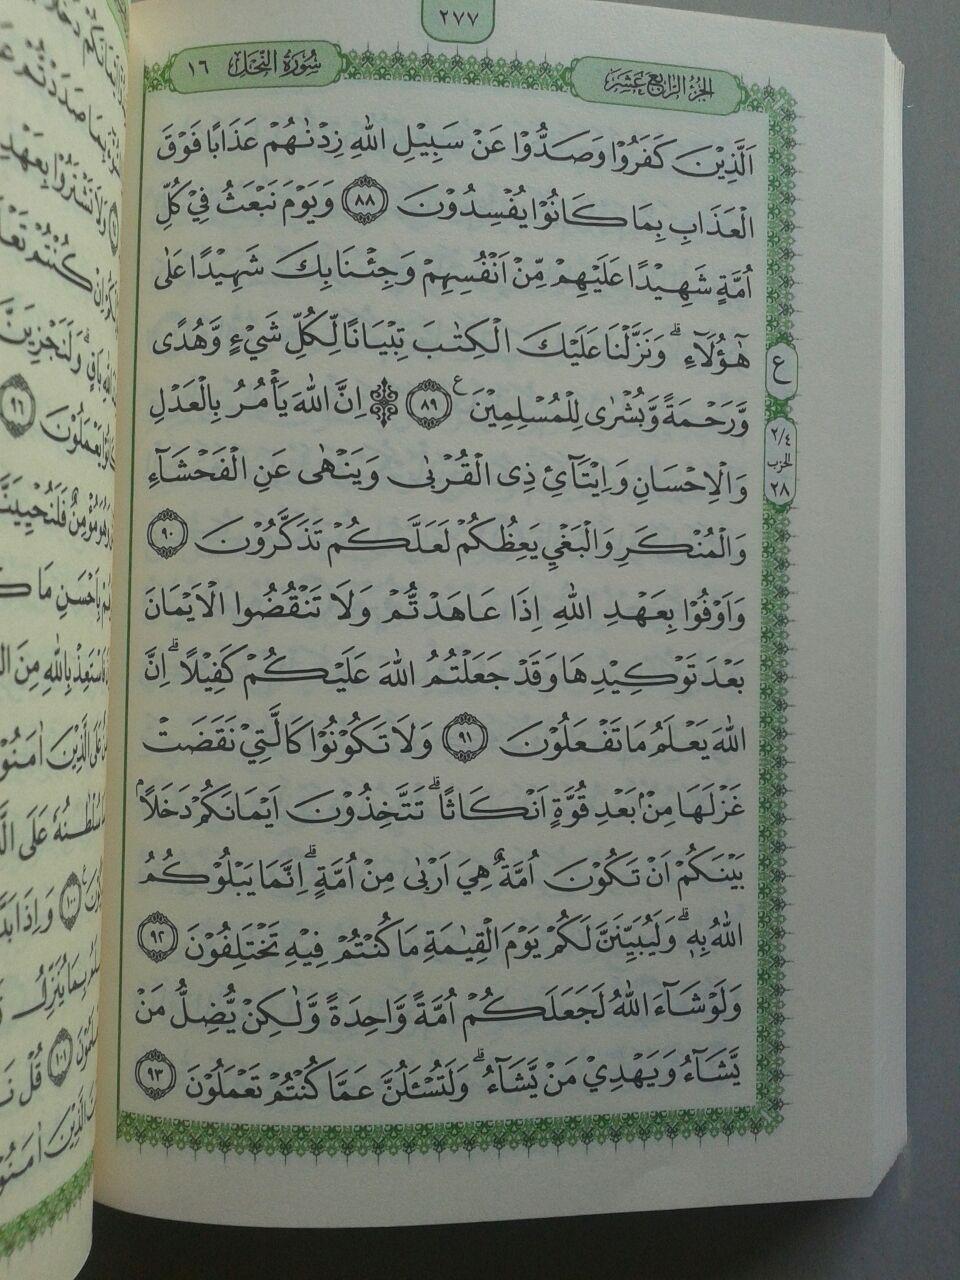 ٢٧٧
الجزء الرابع عشر
سورة النحل ١٦
اَلَّذِيْنَ كَفَرُوْا وَصَدُّوْا عَنْ سَبِيْلِ اللّٰهِ زِدْنٰهُمْ عَذَابًا فَوْقَ
الْعَذَابِ بِمَا كَانُوْا يُفْسِدُوْنَ ٨٨ وَيَوْمَ نَبْعَثُ فِيْ كُلِّ
اُمَّةٍ شَهِيْدًا عَلَيْهِمْ مِّنْ اَنْفُسِهِمْ وَجِئْنَا بِكَ شَهِيْدًا عَلٰى
هٰٓؤُلَاۤءِۗ وَنَزَّلْنَا عَلَيْكَ الْكِتٰبَ تِبْيَانًا لِّكُلِّ شَيْءٍ وَّهُدًى
وَّرَحْمَةً وَّبُشْرٰى لِلْمُسْلِمِيْنَ ࣖ ٨٩ ۞ اِنَّ اللّٰهَ يَأْمُرُ بِالْعَدْلِ
وَالْاِحْسَانِ وَاِيْتَاۤئِ ذِى الْقُرْبٰى وَيَنْهٰى عَنِ الْفَحْشَاۤءِ
وَالْمُنْكَرِ وَالْبَغْيِ يَعِظُكُمْ لَعَلَّكُمْ تَذَكَّرُوْنَ ٩٠
وَاَوْفُوْا بِعَهْدِ اللّٰهِ اِذَا عَاهَدْتُّمْ وَلَا تَنْقُضُوا الْاَيْمَانَ
بَعْدَ تَوْكِيْدِهَا وَقَدْ جَعَلْتُمُ اللّٰهَ عَلَيْكُمْ كَفِيْلًاۗ اِنَّ
اللّٰهَ يَعْلَمُ مَا تَفْعَلُوْنَ ٩١ وَلَا تَكُوْنُوْا كَالَّتِيْ نَقَضَتْ
غَزْلَهَا مِنْۢ بَعْدِ قُوَّةٍ اَنْكَاثًاۗ تَتَّخِذُوْنَ اَيْمَانَكُمْ دَخَلًاۢ
بَيْنَكُمْ اَنْ تَكُوْنَ اُمَّةٌ هِيَ اَرْبٰى مِنْ اُمَّةٍۗ اِنَّمَا يَبْلُوْكُمُ
اللّٰهُ بِهٖۗ وَلَيُبَيِّنَنَّ لَكُمْ يَوْمَ الْقِيٰمَةِ مَا كُنْتُمْ فِيْهِ تَخْتَلِفُوْنَ ٩٢
وَلَوْ شَاۤءَ اللّٰهُ لَجَعَلَكُمْ اُمَّةً وَّاحِدَةً وَّلٰكِنْ يُّضِلُّ مَنْ
يَّشَاۤءُ وَيَهْدِيْ مَنْ يَّشَاۤءُۗ وَلَتُسْـَٔلُنَّ عَمَّا كُنْتُمْ تَعْمَلُوْنَ ٩٣
ع
٢/٤
الحزب
٢٨